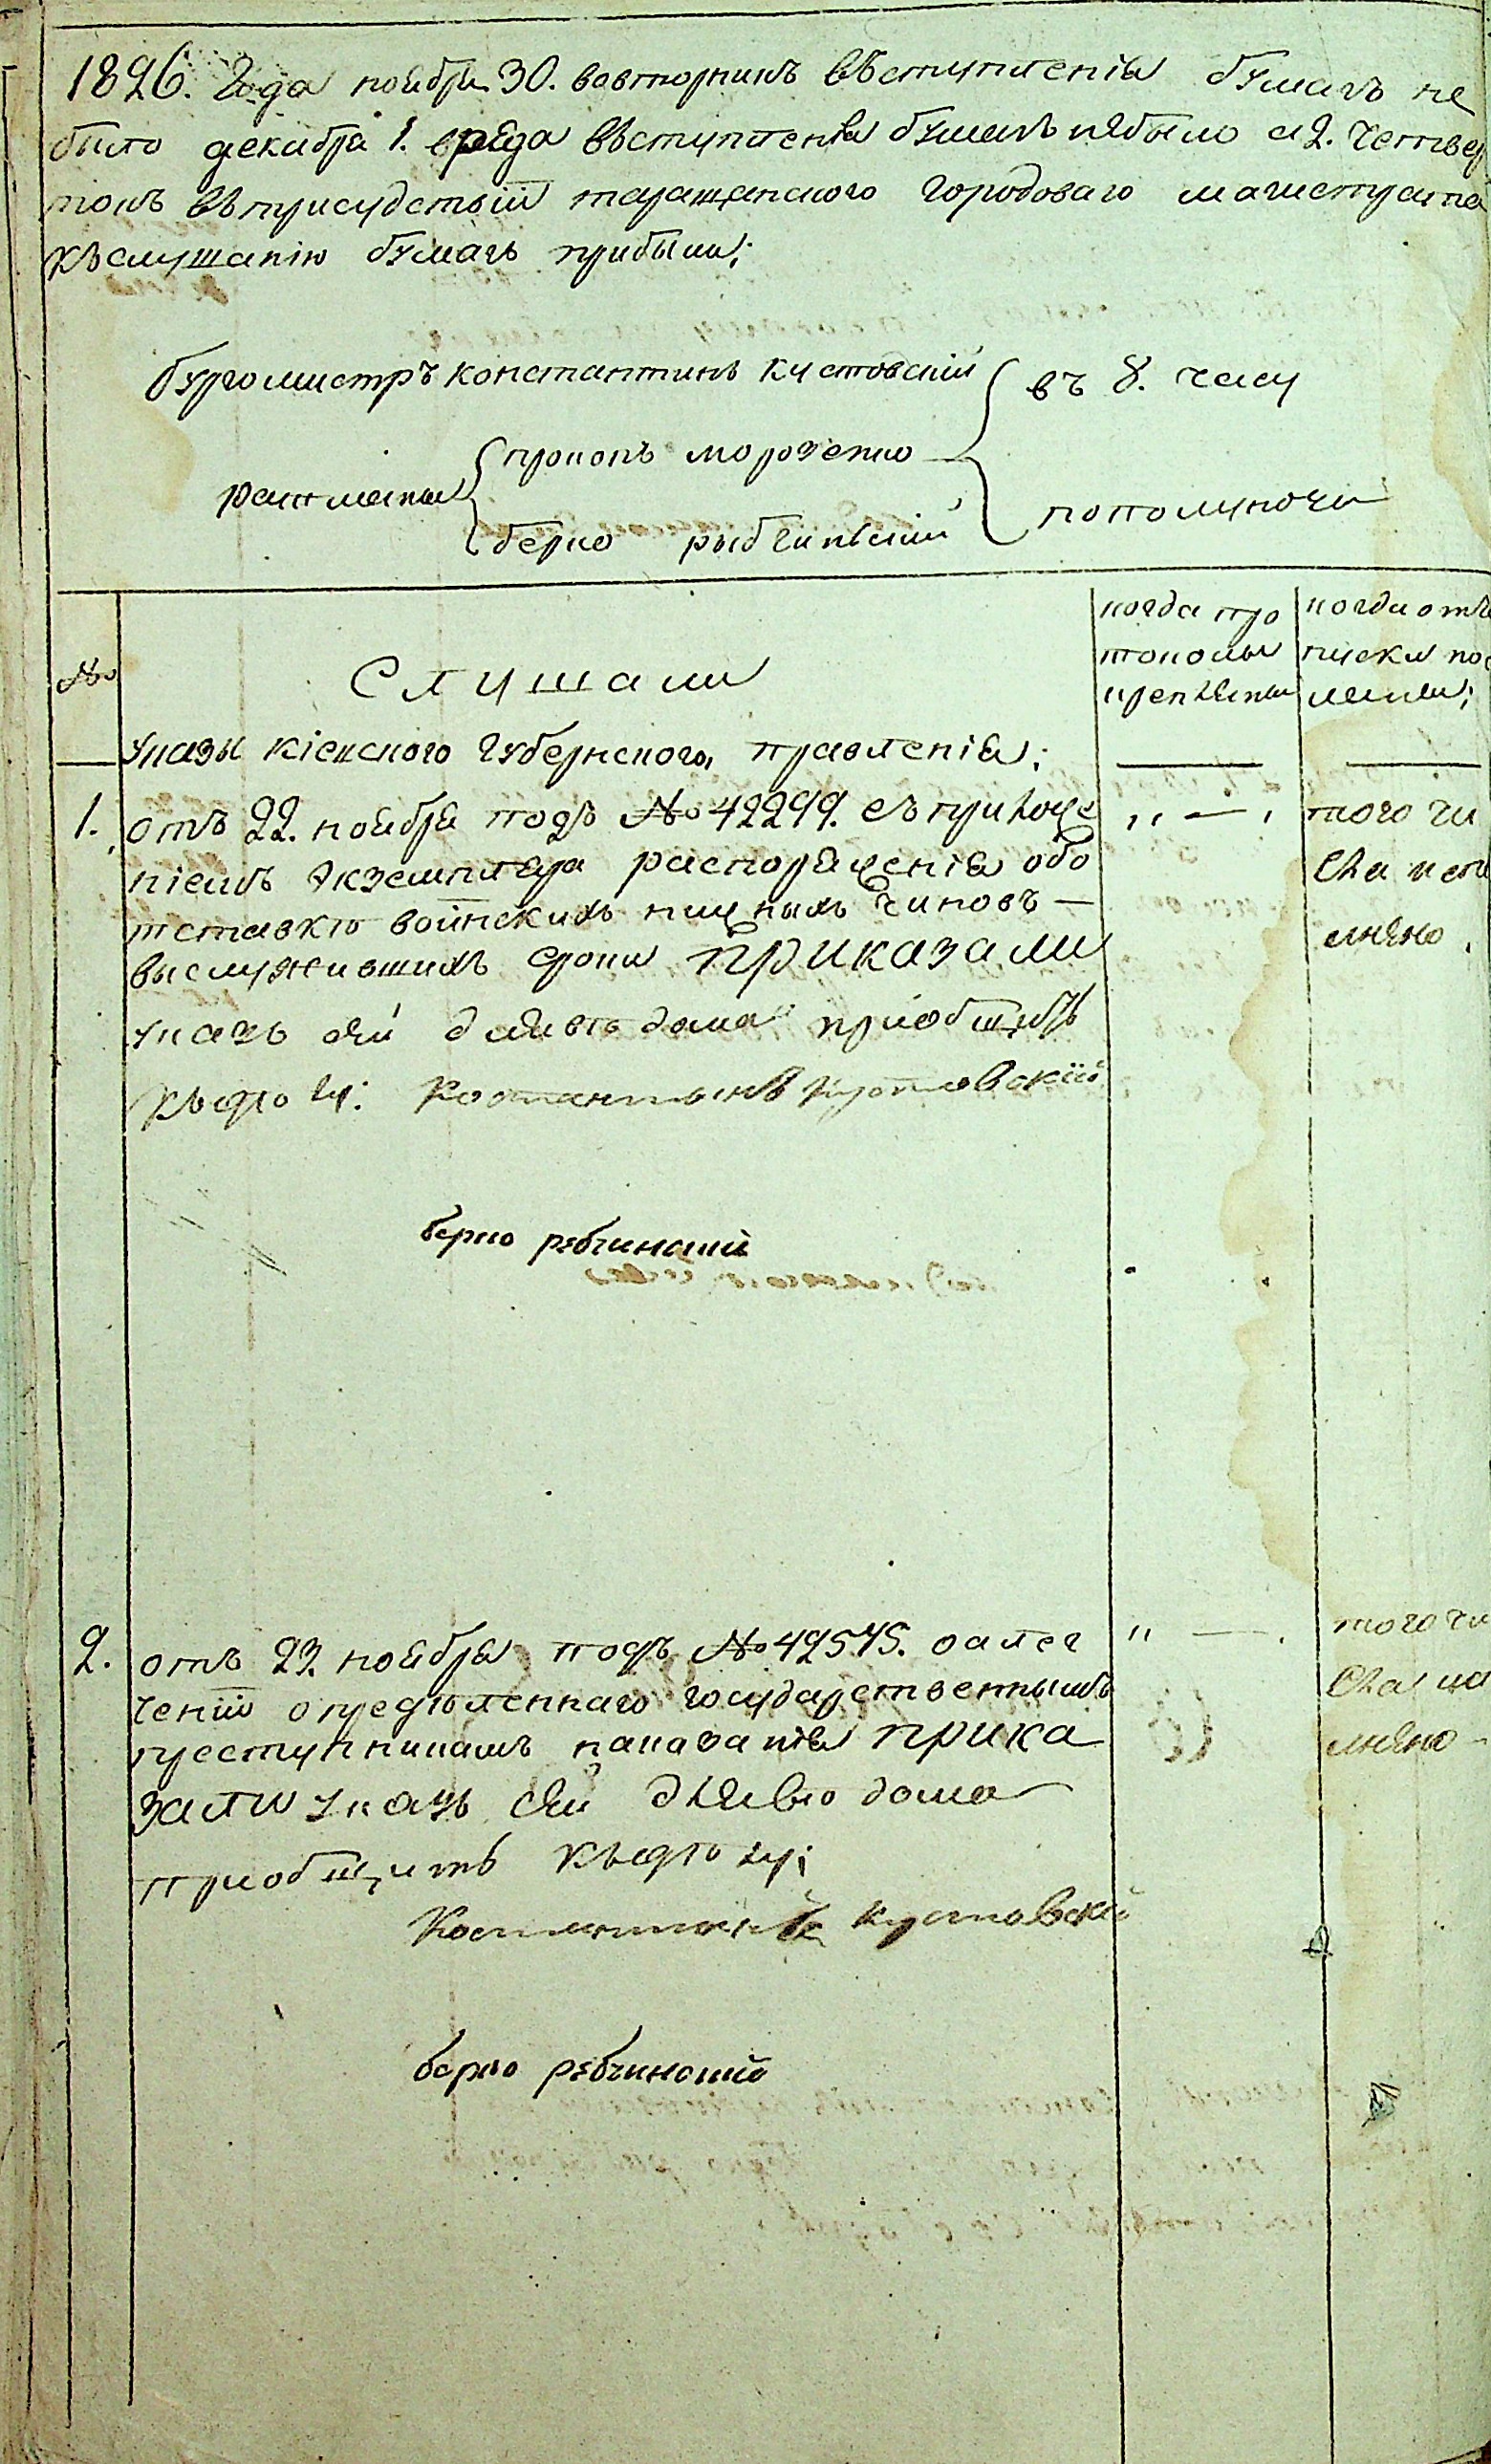 1826. Года ноября 30. вовторникъ въступленія бумагъ не
было декабря 1. среда въступленія бумагъ небыло а 2. Четвер
токъ въприсудствіи таращанского городоваго магистрата
къслушанію бумагъ прибыли;
бургомистръ константинъ кустовскій
въ 8. часу
прокопъ морозенко
ратманы
берко рыбчинскій
пополуночи
№
Слушали
когда про
токолы
скрепленны
когда отъ
пуски пос
ланы;
указы кіевского губернского правленія:
1. отъ 22. ноября подъ № 42299. съприложе
ніемъ экземпляра распоряженія обо
тставкѣ воинскихъ нижныхъ чиновъ —
выслужившихъ сроки приказали
указъ сей для въдома приобщить
къдѣлу: Костантынъ Кустовский
„ — , того чи
сла испо
лнено.
берко рибчинский
2. отъ 23. ноября подъ № 42575. оалег
ченіи определеннаго государственнымъ
преступникамъ наказанія прика
зали указъ сей для въдома
приобщить къдѣлу;
Костантынъ Кустовский
„ — . того чи
сла испо
лнено -
берко рибчинский